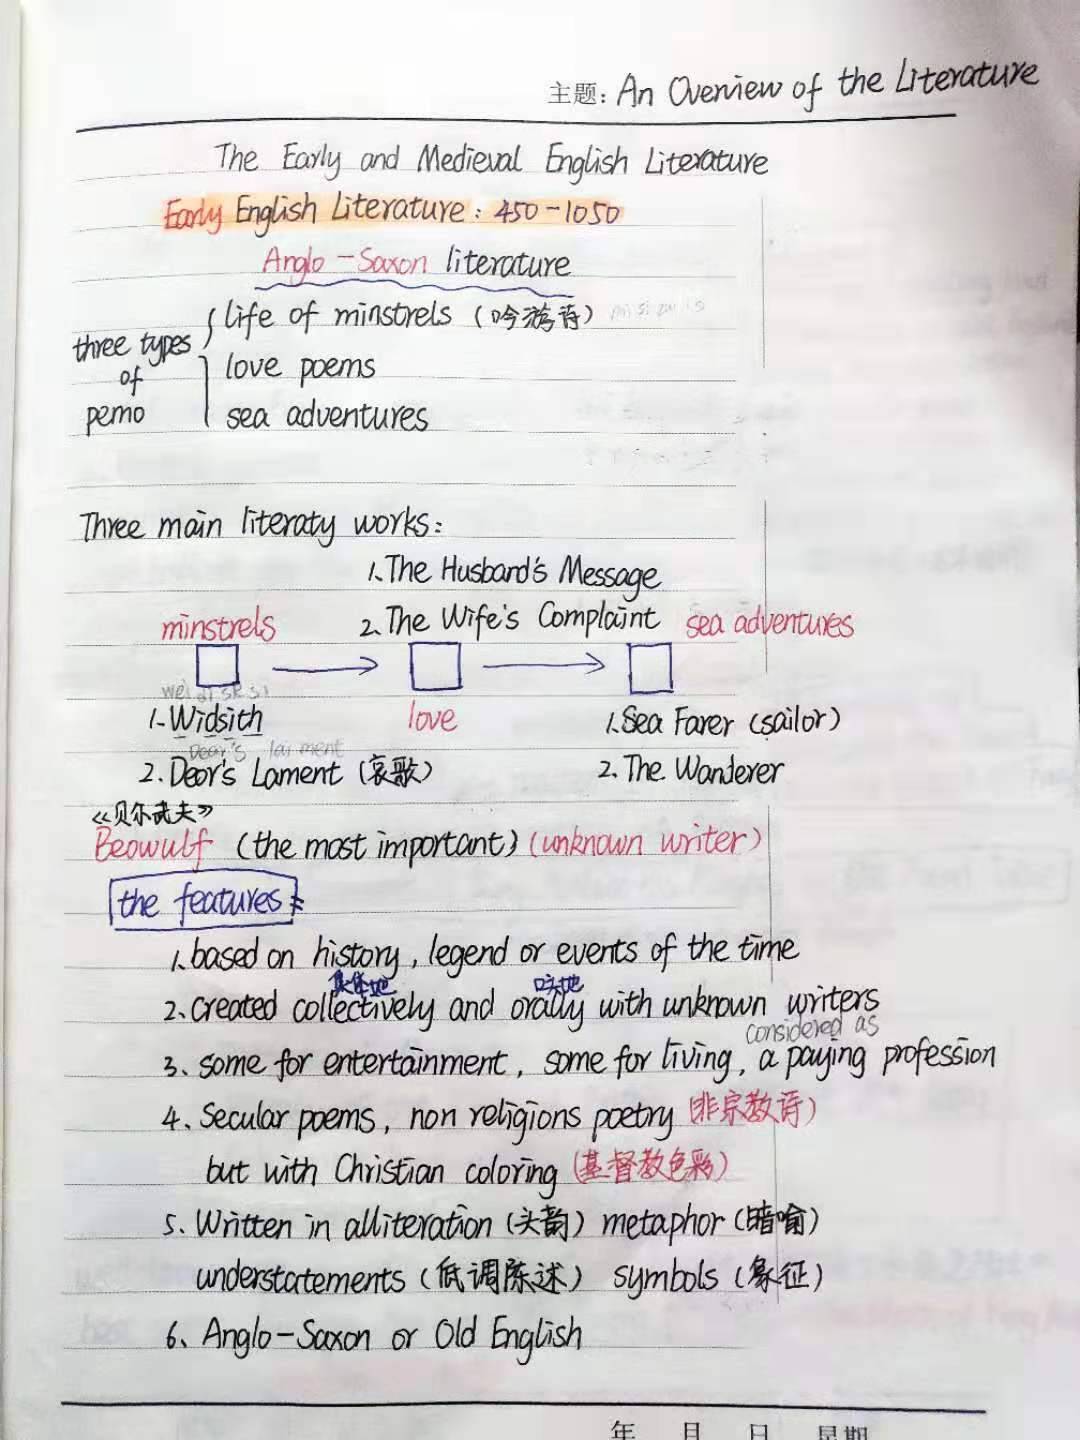 主题: An Overview of the Literature
The Early and Medieval English Literature
Early English Literature: 450-1050
Anglo-Saxon literature
three types of pemo
life of minstrels (吟游诗)
love poems
sea adventures
Three main literaty works:
1、The Husband's Message
minstrels 2、The Wife's Complaint sea adventures
1、Widsith love 1、Sea Farer (sailor)
2、Deor's Lament (哀歌) 2、The Wanderer
《贝尔武夫》
Beowulf (the most important) (unknown writer)
the features:
1、based on history, legend or events of the time
集体地 口头地
2、created collectively and orally with unknown writers
considered as
3、some for entertainment, some for living, a paying profession
4、Secular poems, non religions poetry (非宗教诗)
but with Christian coloring (基督教色彩)
5、Written in alliteration (头韵) metaphor (暗喻)
understatements (低调陈述) symbols (象征)
6、Anglo-Saxon or Old English
年 月 日 星期